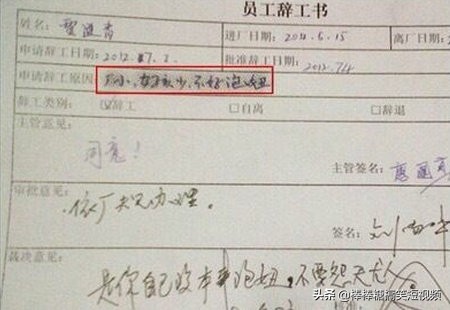 员工辞工书
姓名: 进厂日期: 2011.6.15 离厂日期
申请辞工日期: 2012.7.2. 批准辞工日期: 2012.7.4
申请辞工原因: 厂小、女孩少、不好泡妞
辞工类别: 辞工 □自离 □辞退
主管意见:
同意!
主管签名:
审批意见:
依厂规办理。
签名: 刘
裁决意见:
是你自己没本事泡妞,不要怨天尤人。
头条 @棒棒糖搞笑短视频